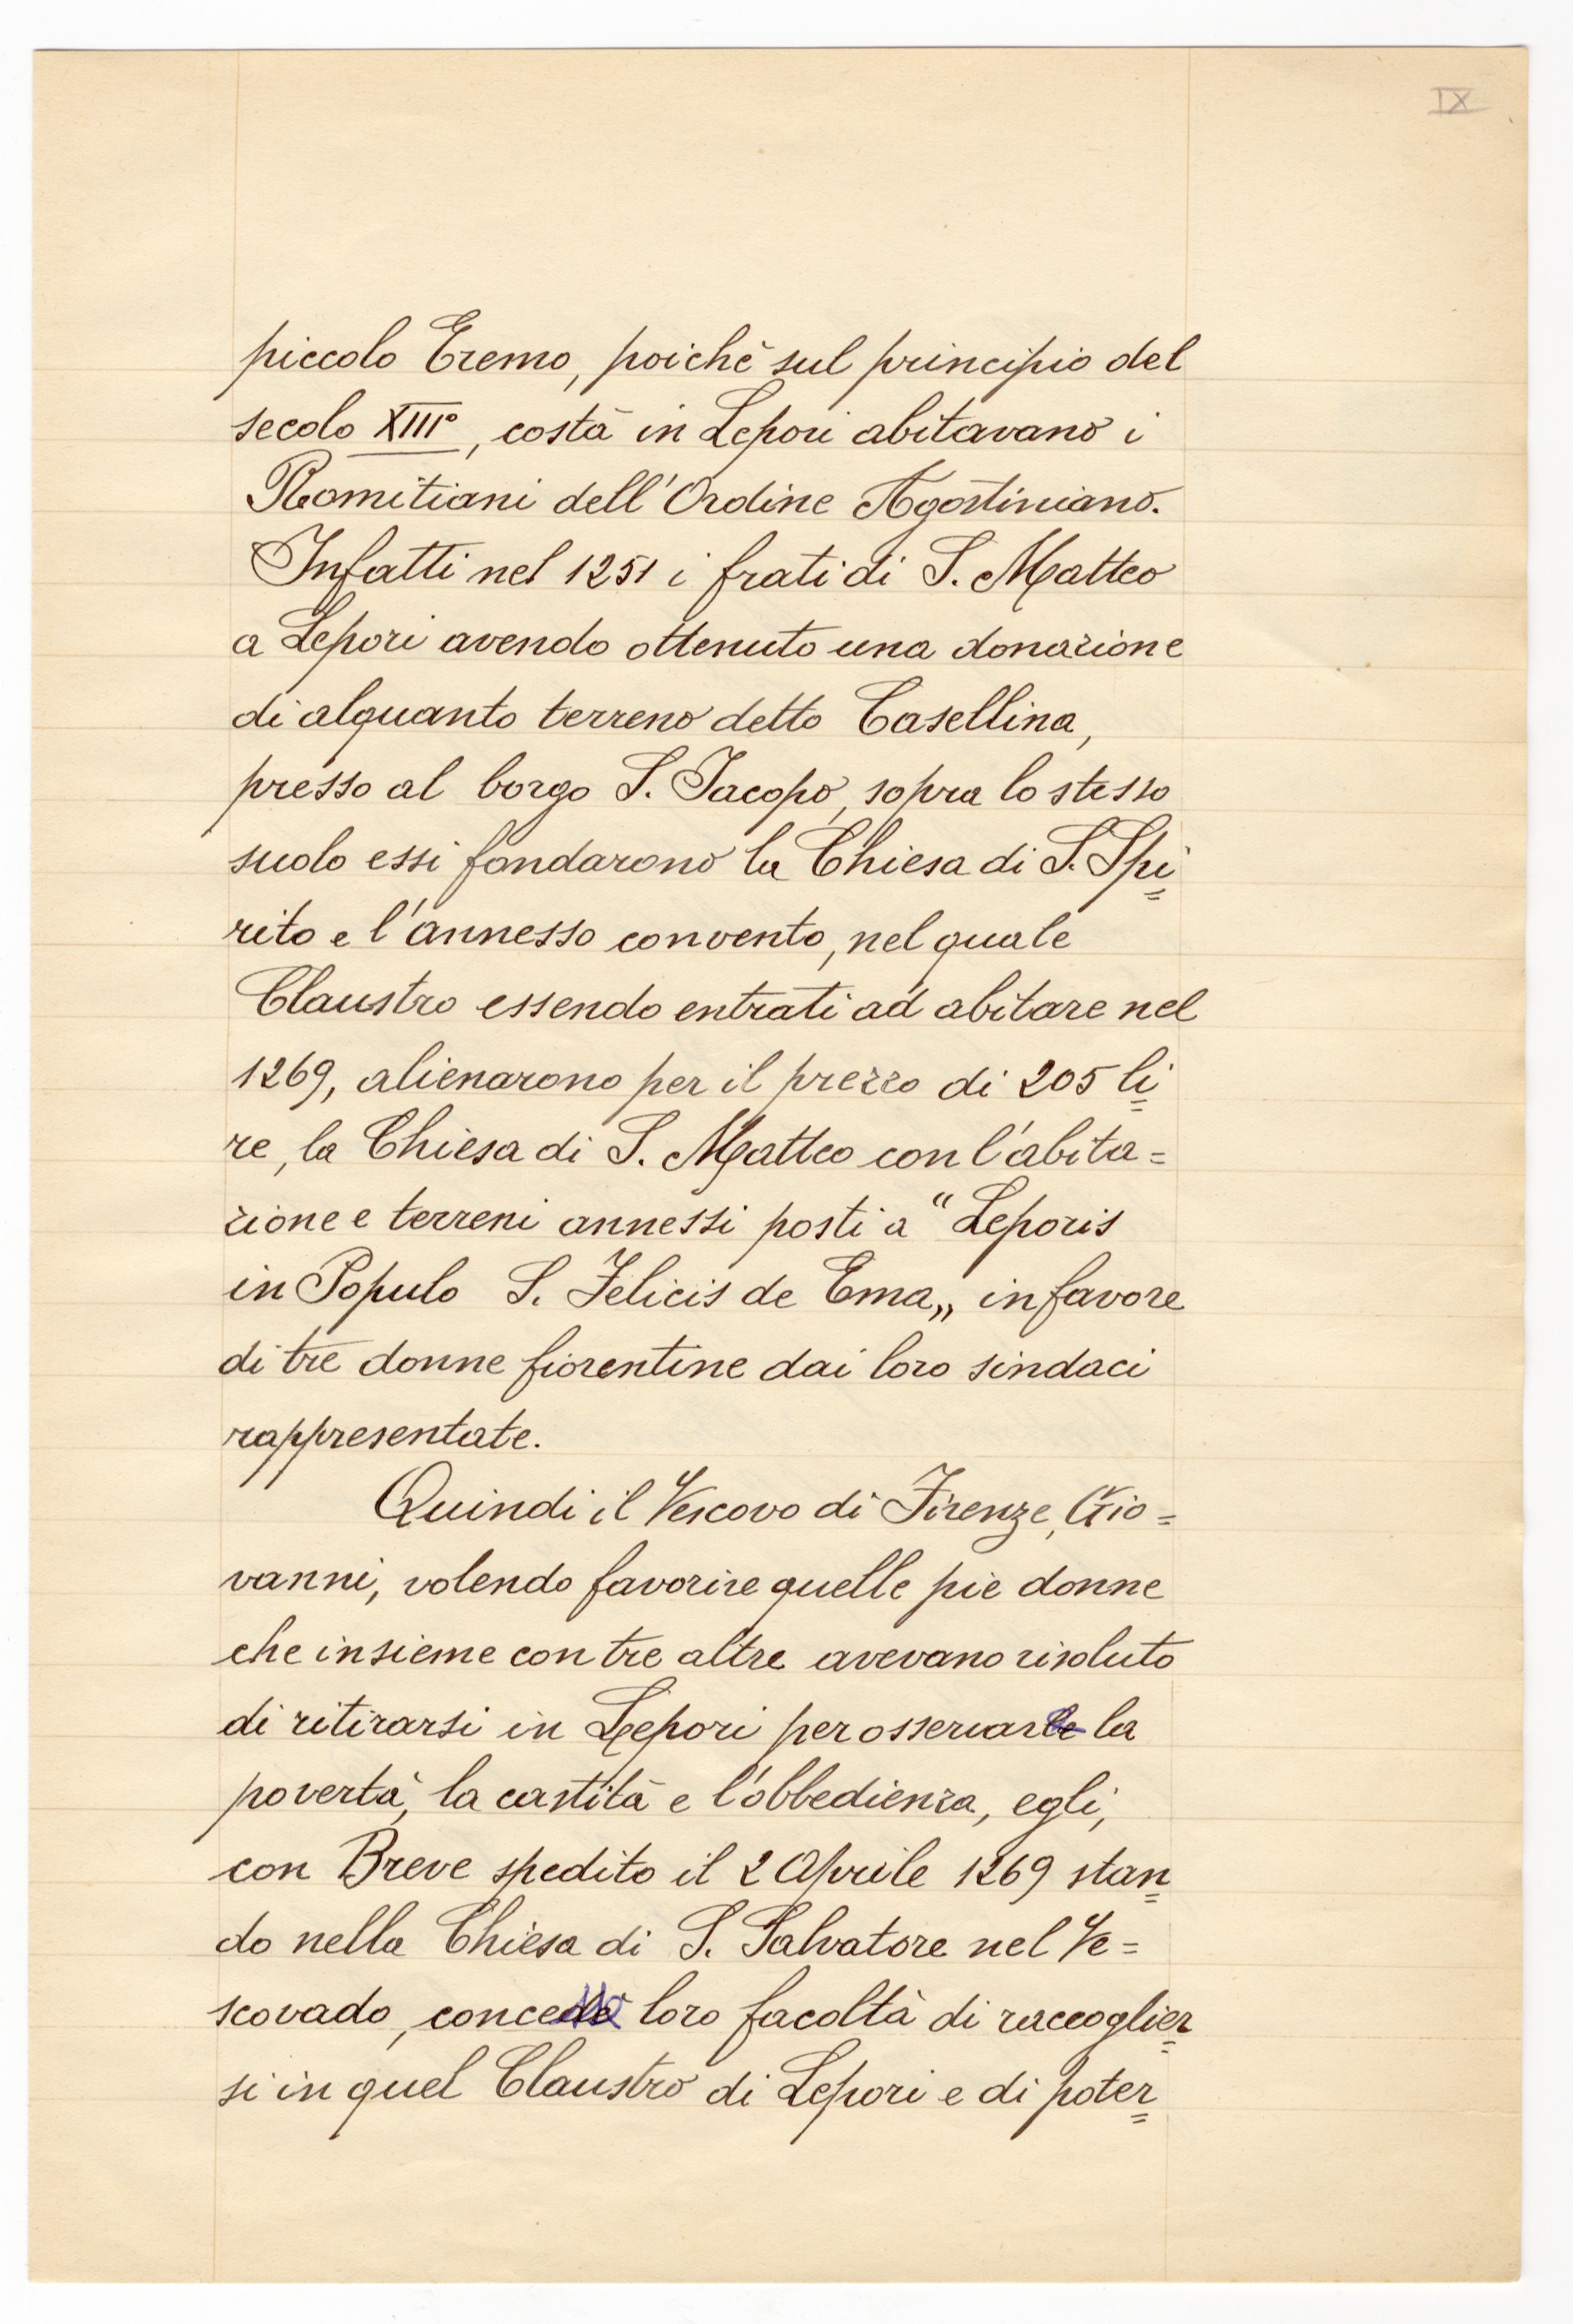 IX
piccolo Eremo, poichè sul principio del
secolo XIII°, costà in Lepori abitavano i
Romitiani dell'Ordine Agostiniano.
Infatti nel 1251 i frati di S. Matteo
a Lepori avendo ottenuto una donazione
di alquanto terreno detto Casellina,
presso al borgo S. Jacopo, sopra lo stesso
suolo essi fondarono la Chiesa di S. Spi=
rito e l'annesso convento, nel quale
Claustro essendo entrati ad abitare nel
1269, alienarono per il prezzo di 205 li=
re, la Chiesa di S. Matteo con l'abita=
zione e terreni annessi posti a "Leporis
in Populo S. Felicis de Ema„ in favore
di tre donne fiorentine dai loro sindaci
rappresentate.
Quindi il Vescovo di Firenze, Gio=
vanni, volendo favorire quelle pie donne
che insieme con tre altre avevano risoluto
di ritirarsi in Lepori per osservare la
povertà, la castità e l'obbedienza, egli,
con Breve spedito il 2 Aprile 1269 stan=
do nella Chiesa di S. Salvatore nel Ve=
scovado, loro facoltà di raccoglier=
si in quel Claustro di Lepori e di poter=